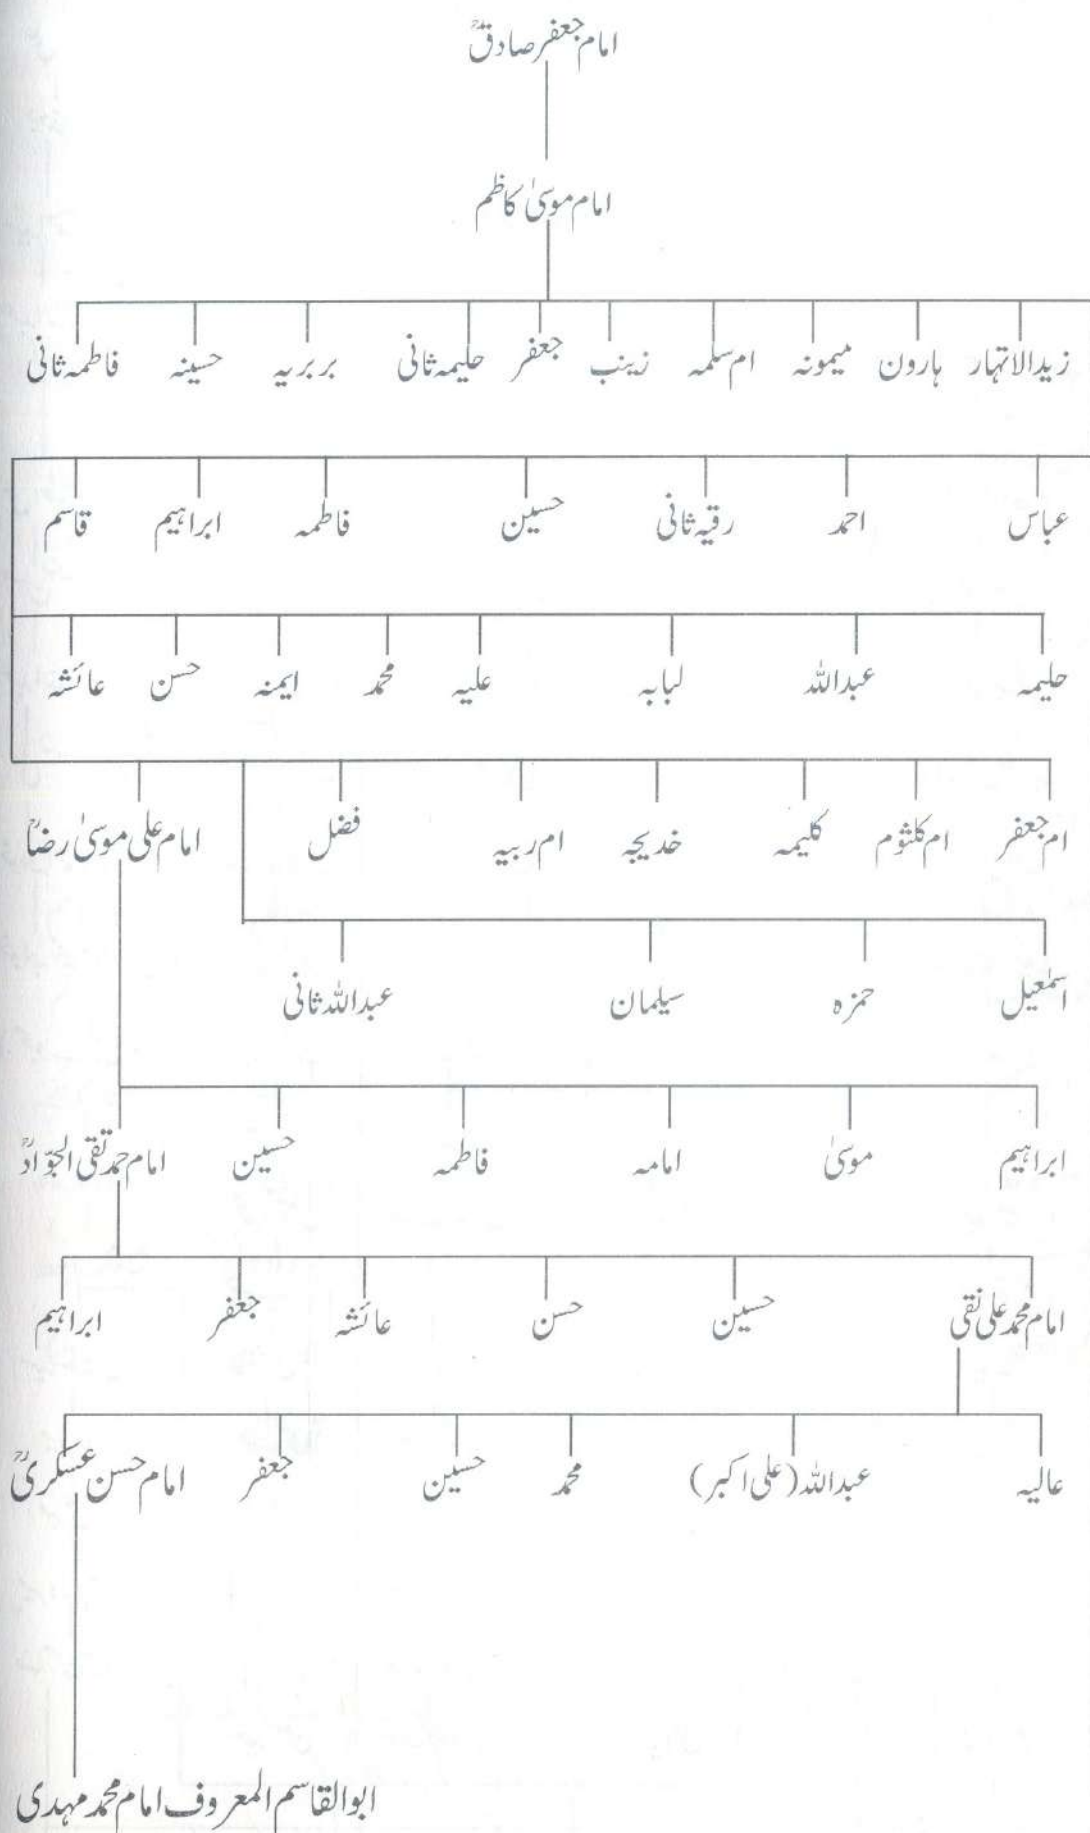 امام جعفر صادقؒ
امام موسیٰ کاظم
زید الانہار ہارون میمونہ ام سلمہ زینب جعفر حلیمہ ثانی بربریہ حسینہ فاطمہ ثانی
عباس احمد رقیہ ثانی حسین فاطمہ ابراہیم قاسم
حلیمہ عبداللہ لبابہ علیہ محمد ایمنہ حسن عائشہ
ام جعفر ام کلثوم کلیمہ خدیجہ ام ربیہ فضل امام علی موسیٰ رضاؒ
اسمٰعیل حمزہ سیلمان عبداللہ ثانی
ابراہیم موسیٰ امامہ فاطمہ حسین امام حمد تقی الجوّادؒ
امام محمد علی نقی حسین حسن عائشہ جعفر ابراہیم
عالیہ عبداللہ (علی اکبر) محمد حسین جعفر امام حسن عسکریؒ
ابوالقاسم المعروف امام محمد مہدی